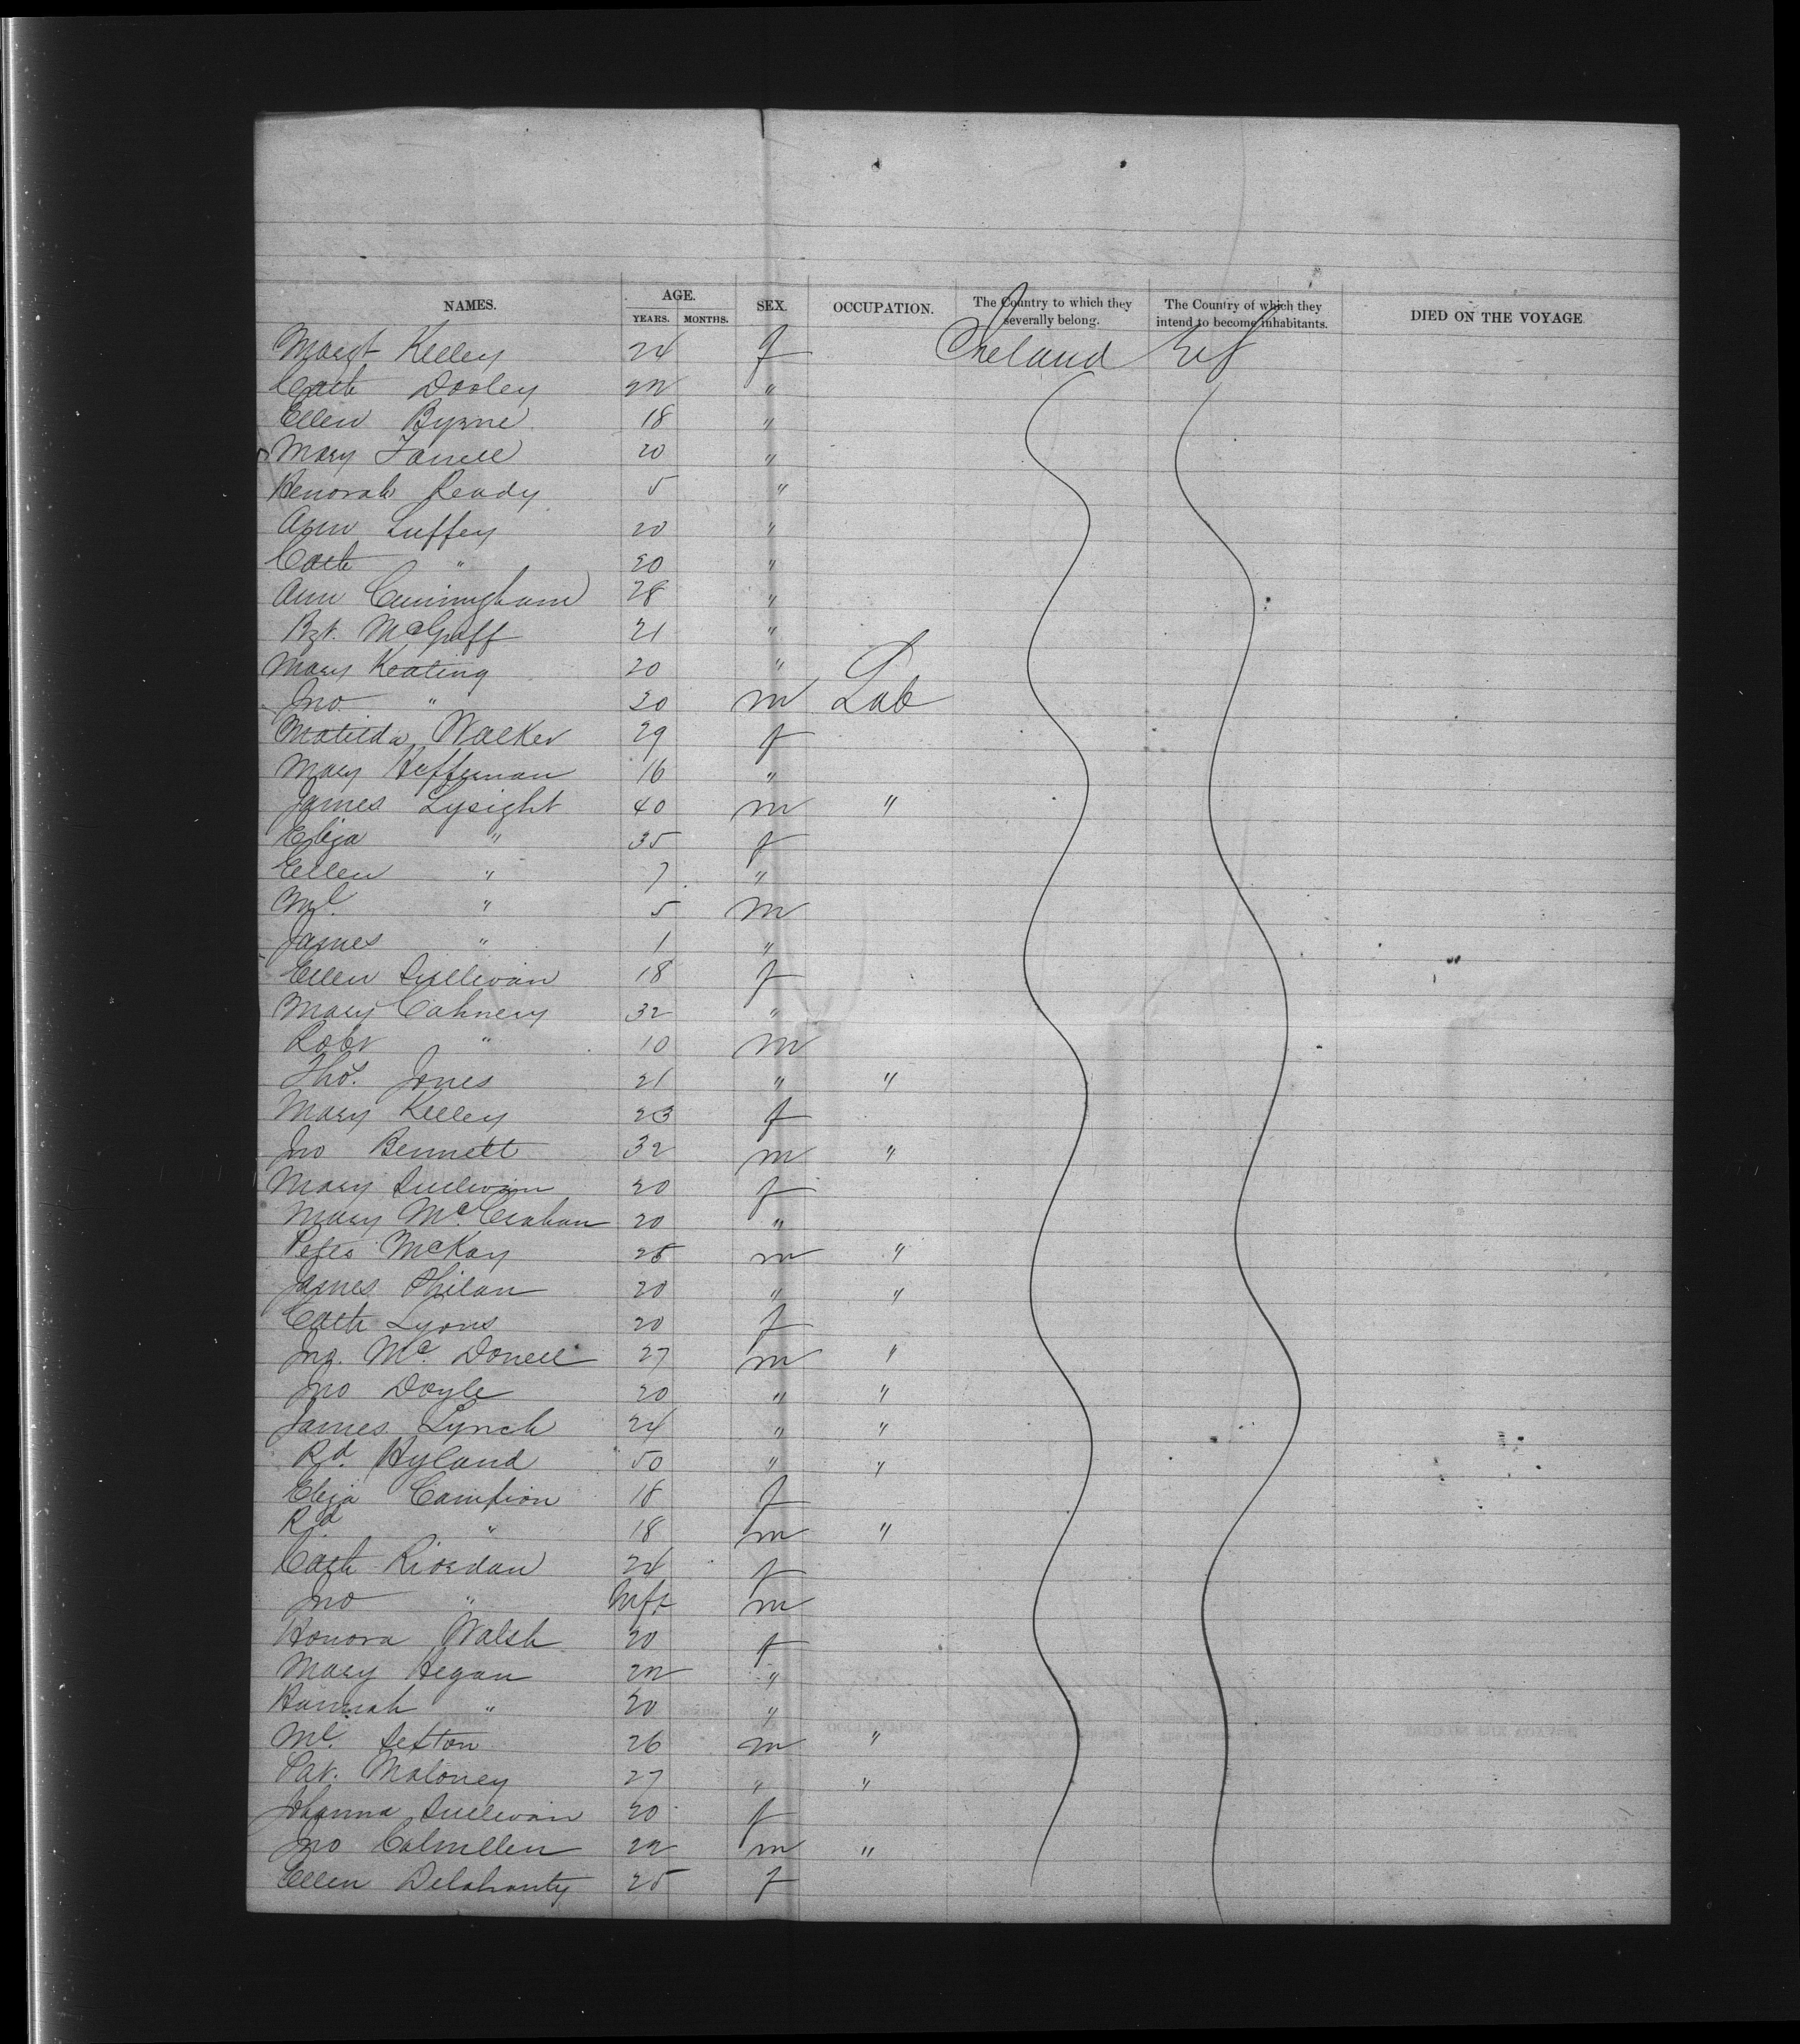 NAMES. AGE. YEARS. MONTHS. SEX. OCCUPATION. The Country to which they severally belong. The Country of which they intend to become inhabitants. DIED ON THE VOYAGE
Margt Kelley 24 f Ireland
Cath Dooley 22 "
Ellen Byrne 18 "
Mary Farrell 20 "
Henorah Ready 5 "
Ann Luffey 20 "
Cath " 20 "
Ann Cunningham 28 "
Bgt. McGraff 21 "
Mary Keating 20 "
Jno " 20 m Lab
Matilda Walker 29 f
Mary Heffernan 16 "
James Lysight 40 m "
Eliza " 35 f
Ellen " 7 "
Ml. " 5 m
James " 1 "
Ellen Sullivan 18 f
Mary Cahnery 32 "
Robt " 10 m
Thos. Jones 21 " "
Mary Kelley 23 f
Jno Bennett 32 m "
Mary Sullivan 20 f
Mary Mc. 20 "
McKay 25 m "
James Philan 20 " "
Cath Lyons 20 f
Jno. Mc. Donell 27 m "
Jno Doyle 20 " "
James Lynch 24 " "
Rd. Hyland 50 " "
Eliza Campion 18 f
Rd " 18 m "
Cath Riordan 24 f
Jno " Inft m
Honora Walsh 20 f
Mary Hegan 22 "
Hannah " 20 "
Ml. Sexton 26 m "
Pat. Maloney 27 " "
Johanna Sullivan 20 f
Jno 22 m "
Ellen Delahanty 25 f